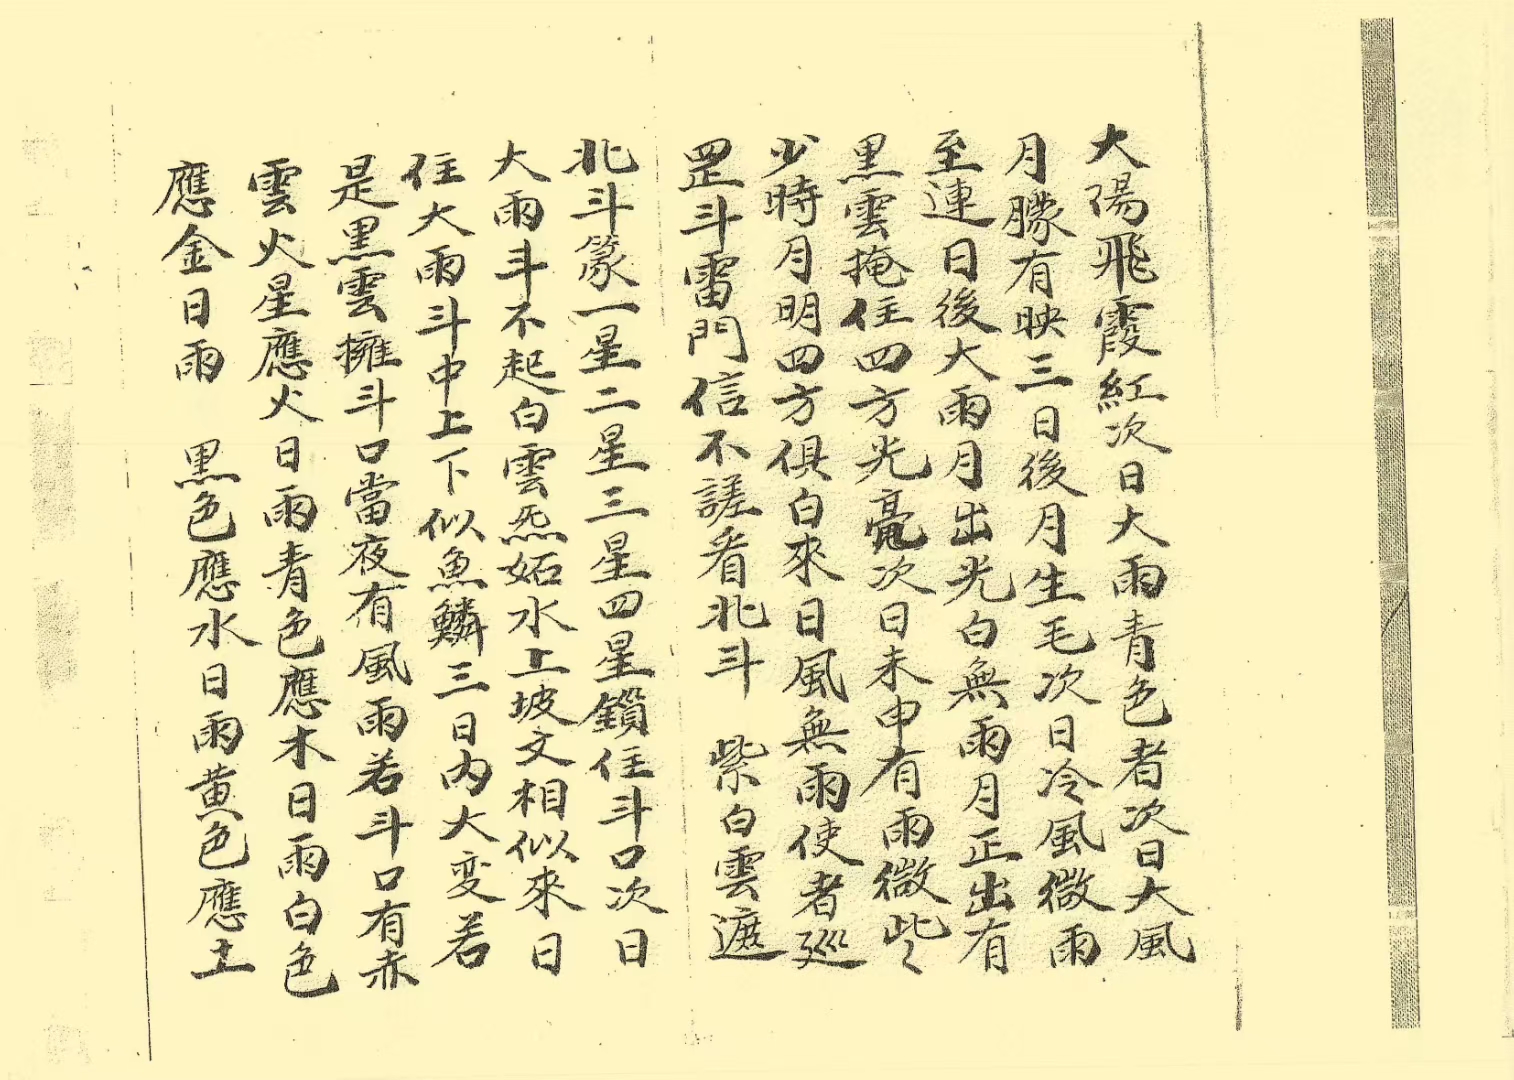 大陽飛霞紅次日大雨青色者次日大風
月朦有映三日後月生毛次日冷風微雨
至連日後大雨月出光白無雨月正出有
黒雲掩住四方光毫次日未申有雨微些々
少時月明四方俱白來日風無雨使者巡
罡斗雷門信不謎看北斗 紫白雲遮
北斗篆一星二星三星四星鎖住斗口次日
大雨斗不起白雲炁妬水上坡文相似來日
住大雨斗中上下似魚鱗三日內大変若
是黒雲擁斗口當夜有風雨若斗口有赤
雲火星應火日雨青色應木日雨白色
應金日雨 黒色應水日雨黄色應土